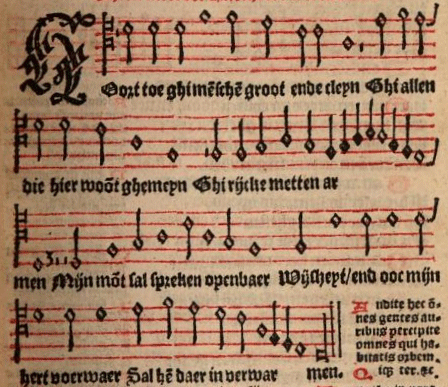 Hoozt toe ghi mēschē groot ende cleyn Ghi allen
die hier woōt ghemeyn Ghi rijcke metten ar
men Mijn mōt sal spreken openbaer Wijsheyt/end ooc mijn
hert voerwaer Sal hē daer in verwar men.
Audite hec ō-
nes gentes au-
ribus percipite
omnes qui ha-
bitatis orbem.
Q iqz ter. ⁊c